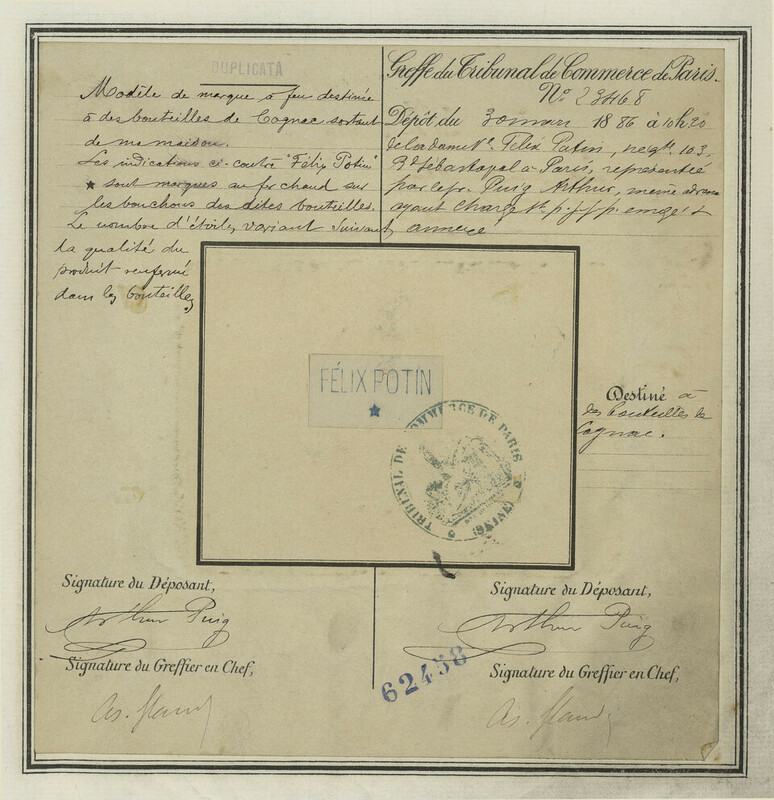 DUPLICATA
Modèle de marque à feu destinée
à des bouteilles de Cognac sortant
de ma maison.
Les indications ci-contre "Félix Potin"
★ sont marques au fer chaud sur
les bouchons des dites bouteilles.
Le nombre d'étoiles variant suivant
la qualité du
produit renfermé
dans les bouteilles
Greffe du Tribunal de Commerce de Paris.
No 23468
Dépôt du 30 mars 1886 à 10h30
de la dame Ve Félix Potin, negte 103
Bd Sébastopol à Paris, représentée
par le sr Puig Arthur, même
ayant charge
FÉLIX POTIN
★
TRIBUNAL DE COMMERCE DE PARIS
(SEINE)
Destiné à
des bouteilles de
Cognac.
Signature du Déposant,
Arthur Puig
Signature du Greffier en Chef,
Signature du Déposant,
Arthur Puig
Signature du Greffier en Chef,
62458